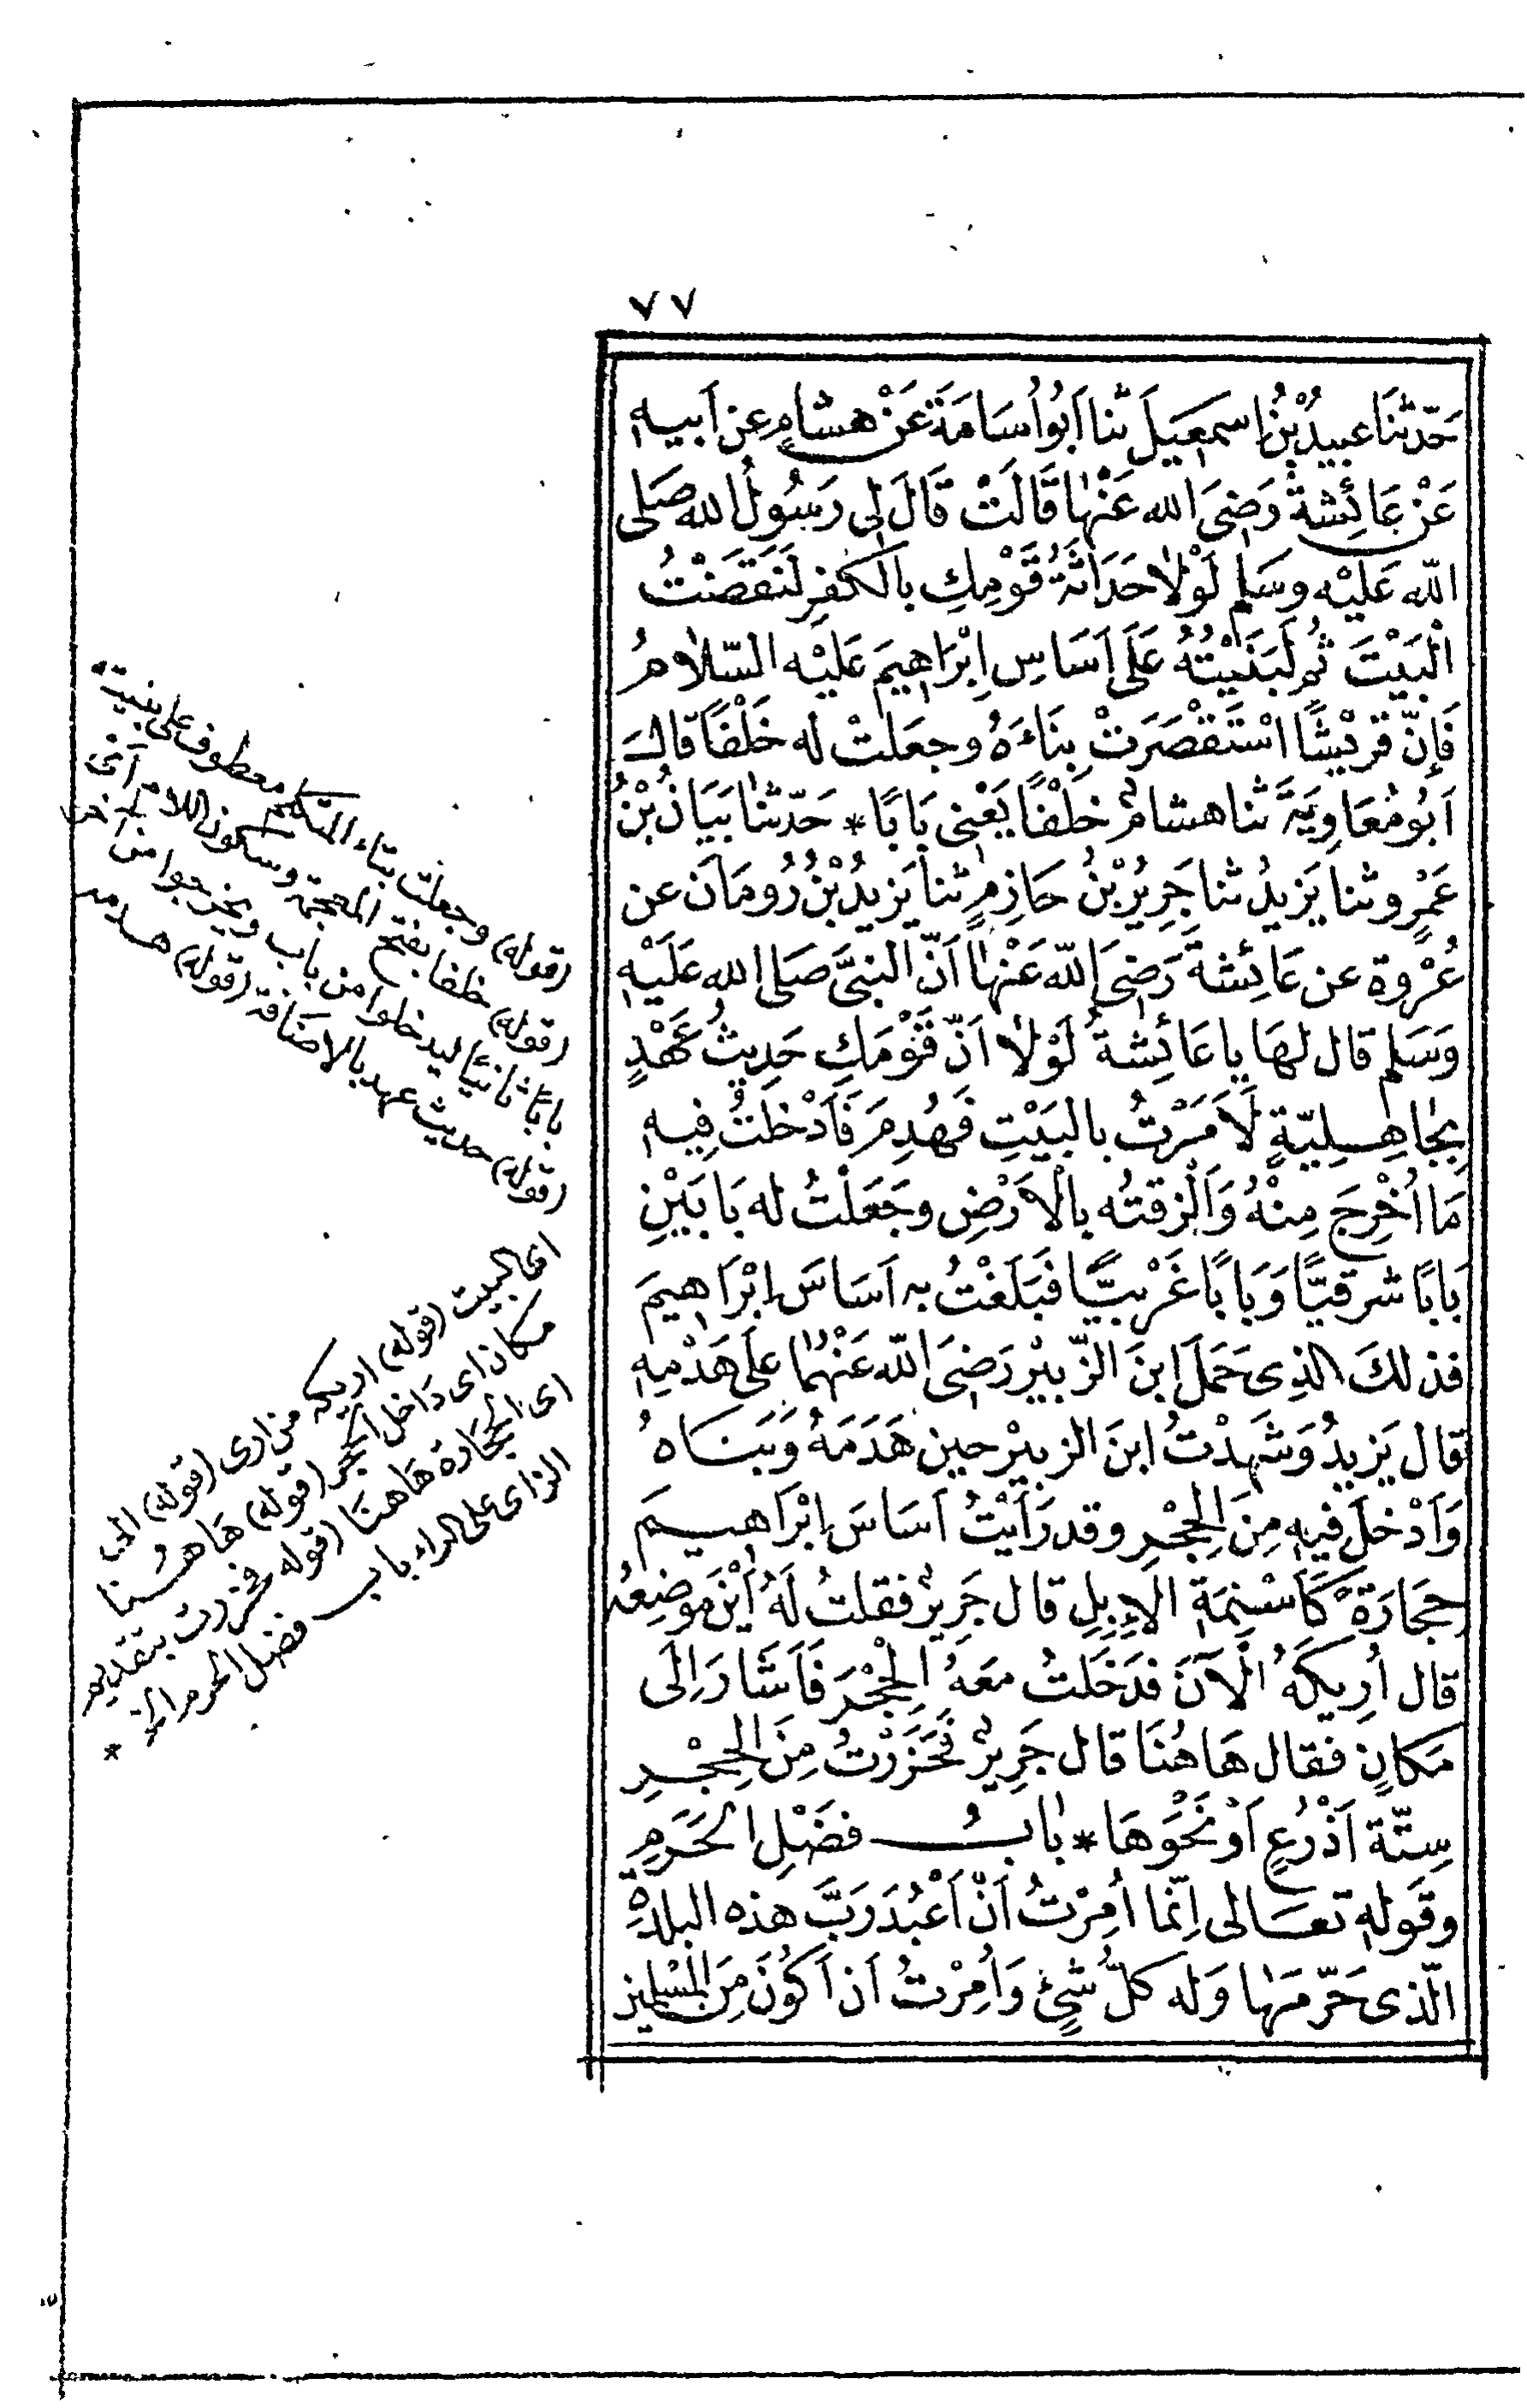 ٧٧
حَدَّثَنَا عبيدُ بْنُ اِسمعيلَ ثنا اَبُو اُسَامَةَ عَنْ هشامٍ عن اَبيه
عَنْ عَائِشةَ رَضِىَ الله عَنْها قَالَتْ قَالَ لِى رَسُولُ الله صَلى
الله عَليْه وسَلم لَوْلاَ حَدَاثَةُ قَوْمِكِ بالكفرِ لَنَقَضْتُ
الْبَيْتَ ثُم لَبَنَيْتُهُ عَلَى اَسَاسِ اِبْرَاهِيمَ عَليْه السّلامُ
فَاِنّ قريْشًا اسْتَقْصَرَتْ بِنَاءَهُ وجعَلتْ له خَلْفًا قالَ
اَبُو مُعَاوِيَةَ ثنا هشامٌ خلْفًا يَعْنِى بَابًا * حَدّثنا بَيَانُ بْنُ
عَمْرٍو ثنا يَزيدُ ثنا جَرِيرُ بْنُ حَازِمٍ ثنا يَزيدُ بْنُ رُومَانَ عن
عُرْوة عن عَائِشةَ رَضِىَ الله عَنْها اَنّ النبىَّ صَلى الله عَلَيْهِ
وَسَلم قال لهَا يا عَائِشةُ لَوْلاَ اَنّ قَوْمَكِ حَدِيثُ عَهْدٍ
بِجَاهِلِيّةٍ لَاَمَرْتُ بالبَيْتِ فَهُدِمَ فَاَدْخَلتُ فِيه
مَا اُخْرِجَ مِنْهُ وَاَلْزقتُه بِالْاَرْضِ وجَعَلْتُ له بَابَيْنِ
بَابًا شرقيّا وَبَابًا غَرْبيّا فبَلَغْتُ به اَسَاسَ اِبْرَاهِيمَ
فذلكَ الذِى حَمَلَ ابنَ الزّبيْر رَضِىَ الله عَنْهُمَا عَلَى هَدْمِه
قال يَزيدُ وَشَهِدْتُ ابنَ الزبيْر حين هَدَمَهُ وَبَنَاهُ
وَاَدْخَلَ فيه مِنَ الحِجْرِ وقد رَاَيْتُ اَسَاسَ اِبْرَاهيمَ
حِجَارَةً كَاَسْنِمَةِ الْاِبِلِ قال جَرِيرٌ فقلتُ لَهُ اَيْنَ مَوْضِعُه
قال اُرِيكَهُ الْآنَ فدَخَلتُ معَهُ الحِجْرَ فَاَشَارَ اِلَى
مَكانٍ فقال هَاهُنَا قال جَرِيرٌ فحَزَرْتُ مِنَ الحِجْرِ
سِتّة اَذْرُعٍ اَوْ نَحْوَهَا * بابُ فضْلِ الحَرَمِ
وقَوله تعَالى اِنّما اُمِرْتُ اَنْ اَعْبُدَ رَبَّ هذه البلدةِ
الّذى حَرّمَها وَله كلّ شئٍ وَاُمِرْتُ اَن اَكُونَ مِنَ المُسْلِمين
(قوله) وجعلت بتاء المتكلم معطوف على بنيته
(قوله) خلفا بفتح المعجمة وسكون اللام اى
بابًا ثانيًا ليدخلوا من باب ويخرجوا من آخر
(قوله) حديث عهد بالاضافة (قوله) هدمه
اى البيت (قوله) اريكه من ارى (قوله) الى
مكان اى داخل الحجر (قوله) هَاهُنا
اى الحجارة هَاهنَا (قوله) فحزرت بتقديم
الزاى على الراء باب فضل الحرم الخ *